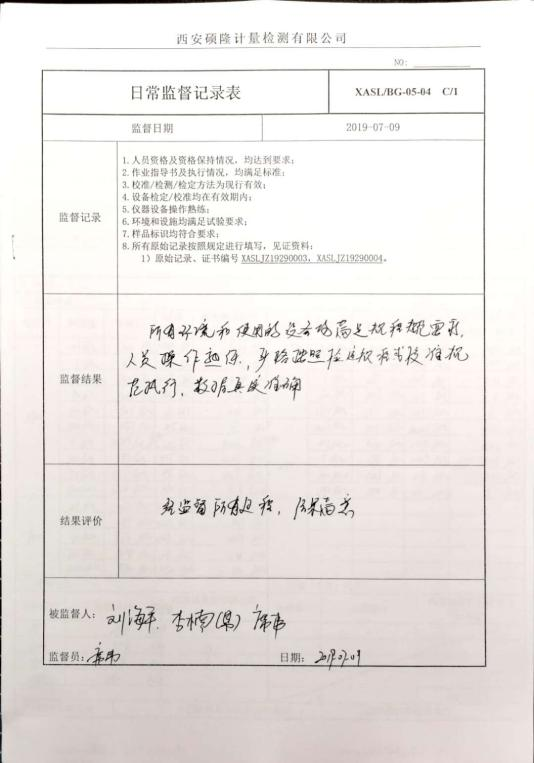 西安硕隆计量检测有限公司
NO:
日常监督记录表
XASL/BG-05-04 C/1
监督日期
2019-07-09
监督记录
1.人员资格及资格保持情况，均达到要求；
2.作业指导书及执行情况，均满足标准；
3.校准/检测/检定方法为现行有效；
4.设备检定/校准均在有效期内；
5.仪器设备操作熟练；
6.环境和设施均满足试验要求；
7.样品标识均符合要求；
8.所有原始记录按照规定进行填写，见证资料：
1）原始记录、证书编号 XASLJZ19290003、XASLJZ19290004。
监督结果
所有环境和使用的设备均满足规程规范要求，
人员操作熟练，严格按照检定规程或校准规
范执行，数据真实准确
结果评价
经监督所有过程，结果满意
被监督人：刘海平、李楠(男)
监督员：
日期：2019.07.09